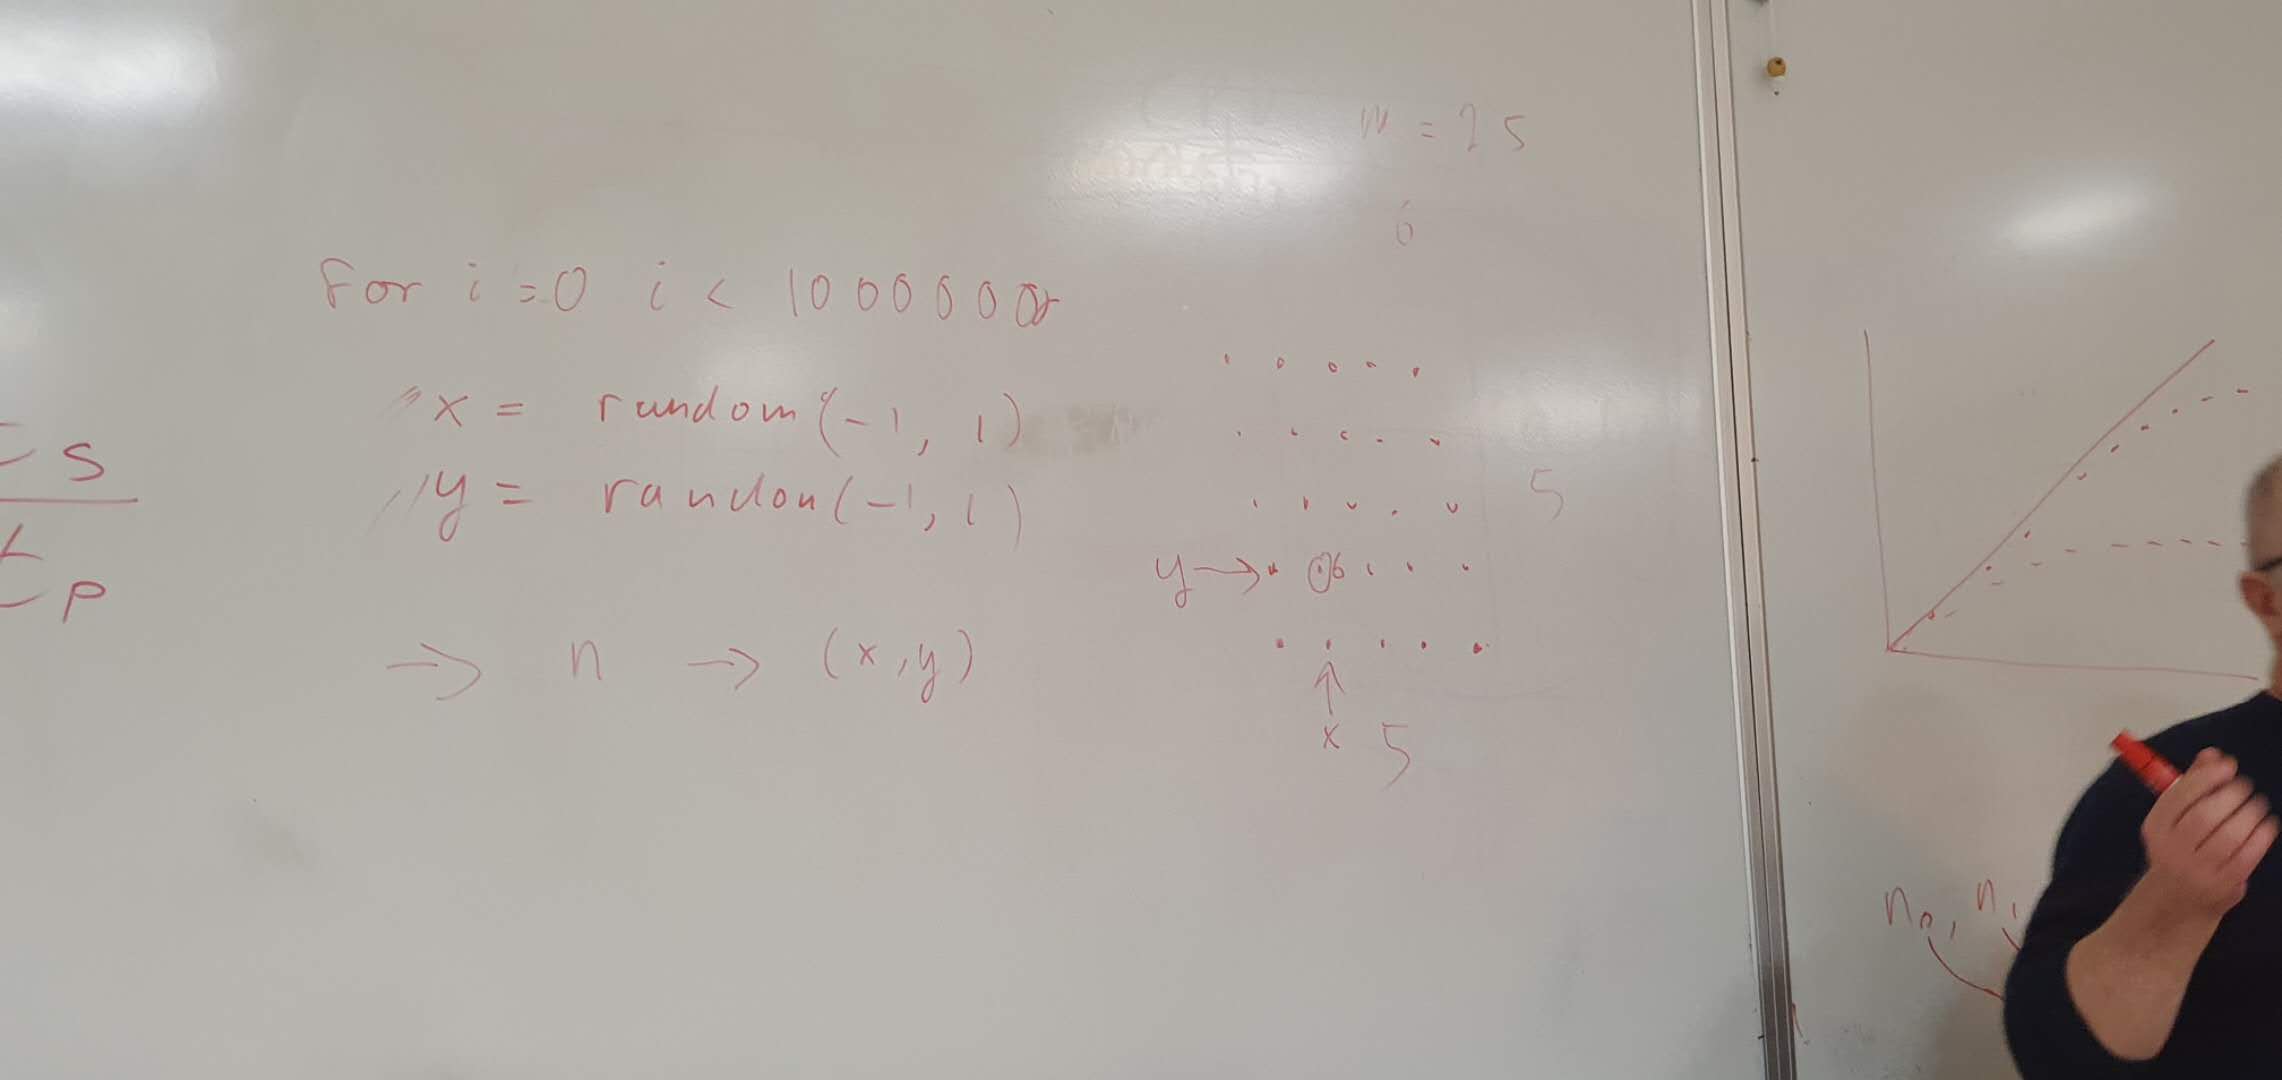 n = 25
6
For i = 0 i < 1000000
x = random(-1, 1)
y = random(-1, 1)
→ n → (x, y)
5
y → 6
↑
x 5
ts
tp
n0, n1